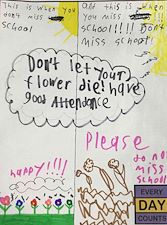 This is when you
don't miss
school
And this is when
you miss
school!!!! Don't
miss school!
Don't let your
flower die! have
good Attendance
happy!!!!
Please
do not
miss
school
EVERY
DAY
COUNTS